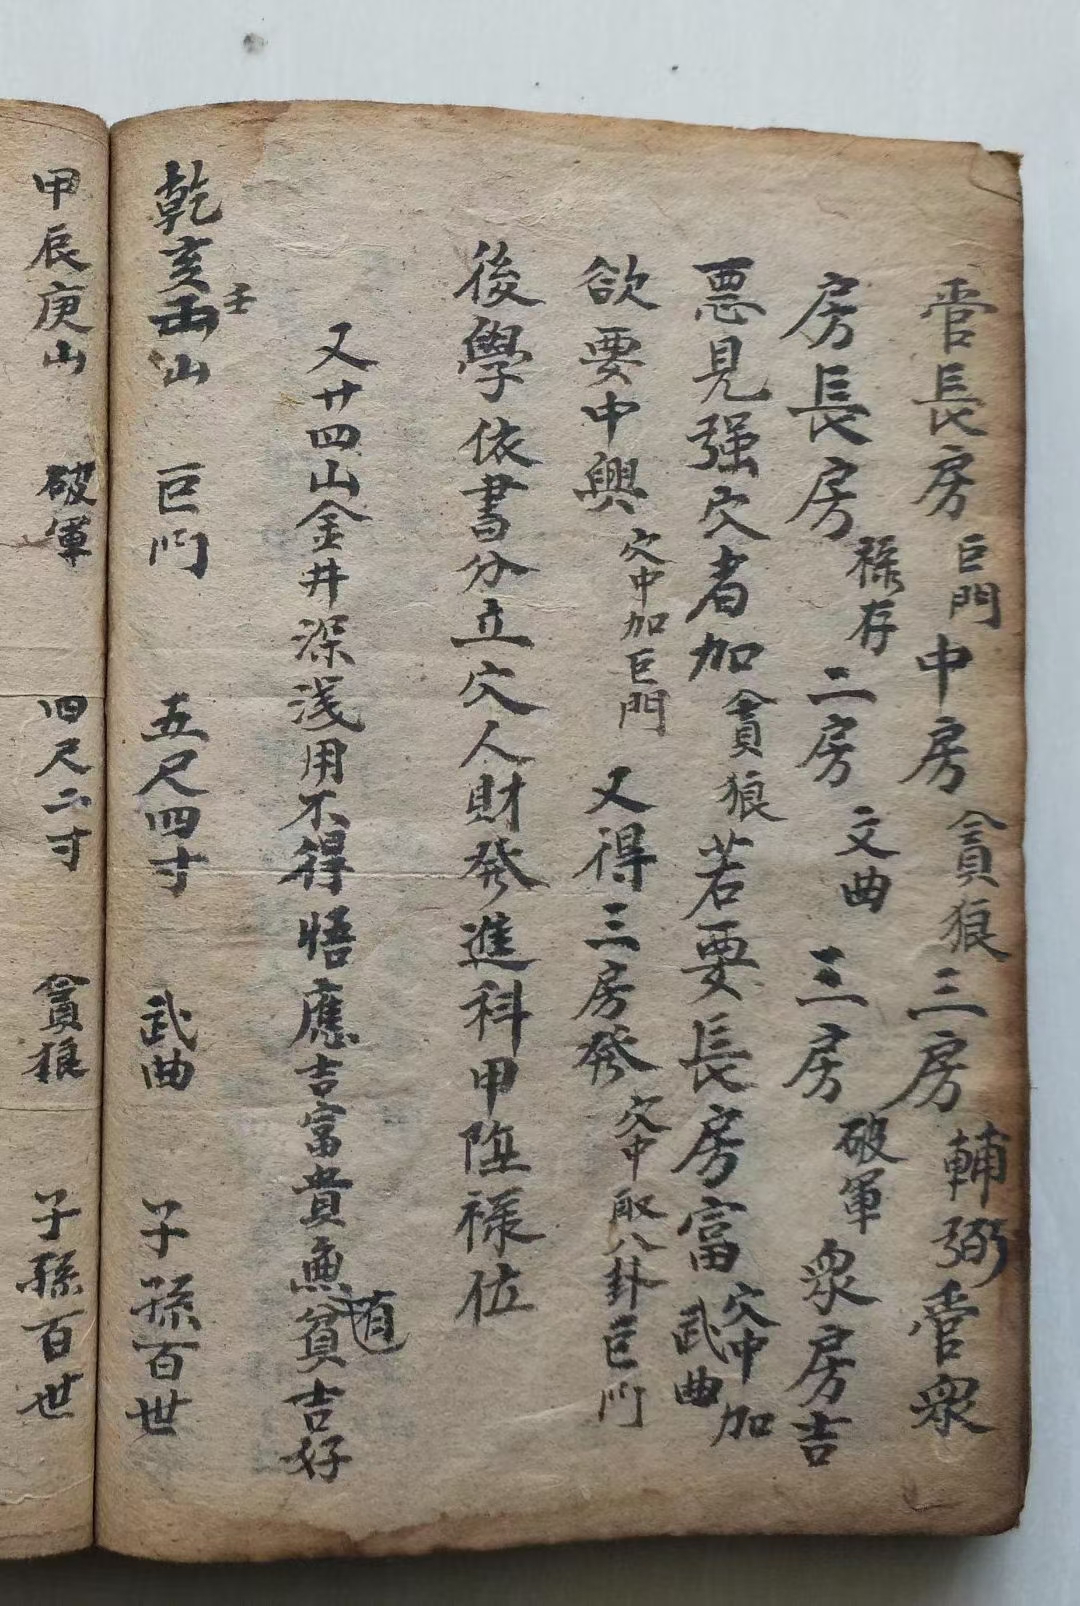 管長房巨門中房貪狼三房輔弼管眾
房長房祿存二房文曲三房破軍眾房吉
悪見强穴者加貪狼若要長房富穴中加武曲
欲要中興穴中加巨門又得三房發穴中取八卦巨门
後學依書分立穴人財發進科甲陞祿位
又廿四山金井深淺用不得悟應吉富貴魚貧吉好
有
乾亥山巨门五尺四寸武曲子孫百世
壬
甲辰庚山破軍四尺二寸貪狼子孫百世